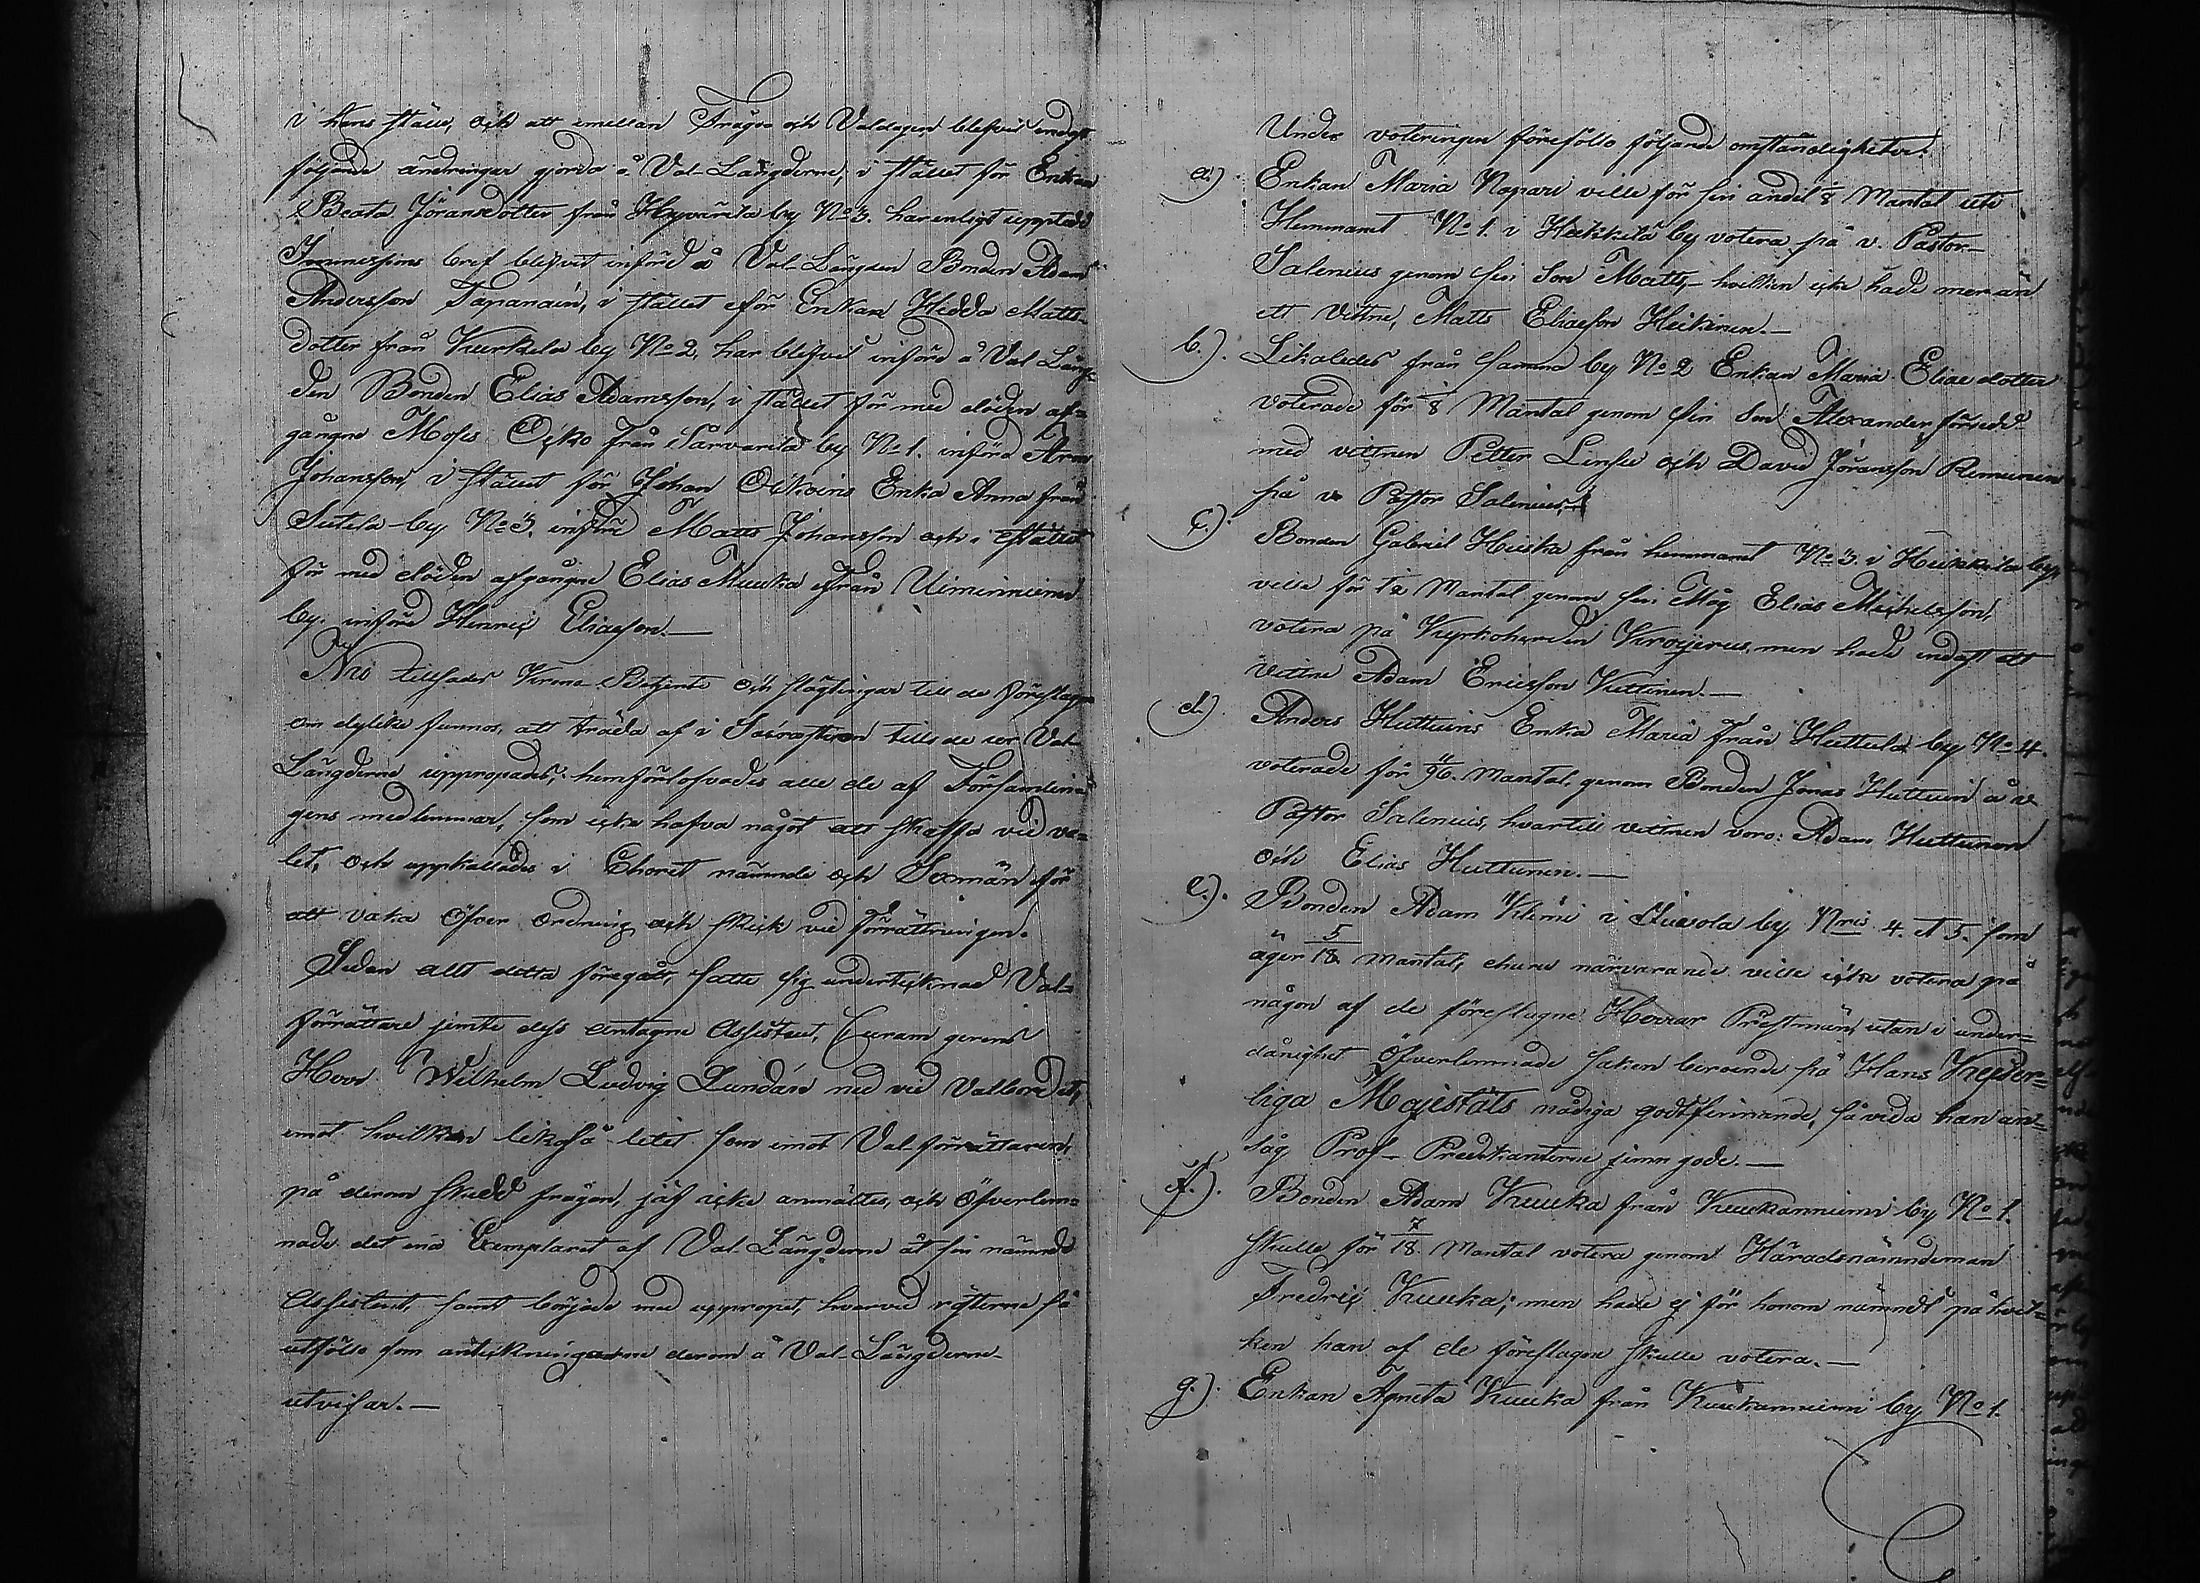 i hans ställe, och att emellan Fråge och Valdagen blefvit endast
följande ändringar gjorda å Val-Längderne, i stället för Enkan
Beata Jöransdotter från Hyvärilä by No 3. har enligt uppteed
Immissions bref blifvit införd å Val-Längden Bonden Adam
Andersson Tapanain, i stället för Enkan Hedda Matts-
dotter från Kurkela by No 2, har blifvit införd å Val Läng-
den Bonden Elias Adamsson, i stället för med döden af-
gångne Moses Oicko från Sarvarila by No 1. införd
Johansson, i stället för Johan Oickoins Enka Anna från
Sutela by No 3. införd Matts Johansson och i stället
för med döden afgångne Elias Muuka från Uiminniemi
by. införd Henric Eliasson.—
Nu tillsades Kirme Betjente och slägtingar till de föreslagne
om dylike funnos, att träda af i Sacrastian tills de ur Val-
Längderne uppropades, hemförlofvades alle de af Församlin-
gens medlemmar, som icke hafva något att skaffa vid va-
let, och uppkallades i Choret nämnde och Sexmän för
att vaka öfver ordning och skick vid förrättningen.
Sedan allt detta föregått, satte sig undertecknad Val-
förrättare jemte dess antagne Assistent, Curam gerens
Herr Wilhelm Ludvig Lundán ned vid Valbordet,
emot hvilken likaså litet som emot Val-förrättaren,
på derom skedd frågan, jäf icke anmältes, och öfverlem-
nade det ena Exemplaret af Val-Längderne åt sin nämnde
Assistent, samt började med uppropet, hvarvid rösterne så
utföllo som anteckningarne derom å Val-Längderne
utvisar.—
Under voteringen föreföllo följande omständigheter:
a.) Enkan Maria Napari ville för sin andel 1/8 Mantal uti
Hemmanet No 1. i Heikkilä by votera på v. Pastor
Salenius genom sin Son Matts,- hvilken icke hade mer än
ett Vittne, Matts Eliasson Heikinen.—
b.). Likaledes från samma by No 2 Enkan Maria Eliae dotter
voterade för 1/8 Mantal genom sin Son Alexander, försedd
med vittnen Petter Linsu och David Jöransson Remunen
på v. Pastor Salenius.
c.). Bonden Gabriel Huska från hemmanet No 3. i Heikkilä by
ville för 1/2 Mantal genom sin Måg Elias Michelsson,
votera på Kyrkoherden Krogerus, men hade endast ett
Vittne Adam Ericsson Vuttinen.—
d.). Anders Huttuins Enka Maria från Huttula by No 4.
voterade för 11/96. Mantal, genom Bonden Jonas Huttuin å v.
Pastor Salenius, hvartill vittnen voro: Adam Huttunen
och Elias Huttunen.—
e.). Bonden Adam Klimi i by Nris 4. et 5. som
äger 5/18 Mantal, ehuru närvarande ville icke votera på
någon af de föreslagne Herrar Prestmän, utan i under-
dånighet öfverlemnade saken beroende på Hans Kejser-
liga Majestäts nådiga godtfinnande, så vida han an-
såg Prof-Predikanterne jemn gode.—
f.). Bonden Adam Kuuka från Kuukanniemi by No 1.
skulle för 7/18 Mantal votera genom Häradsnämndeman
Fredric Kuuka; men hade ej för honom nämndt på hvil-
ken han af de föreslagne skulle votera.—
g.). Enkan Agneta Kuuka från Kuukanniemi by No 1.